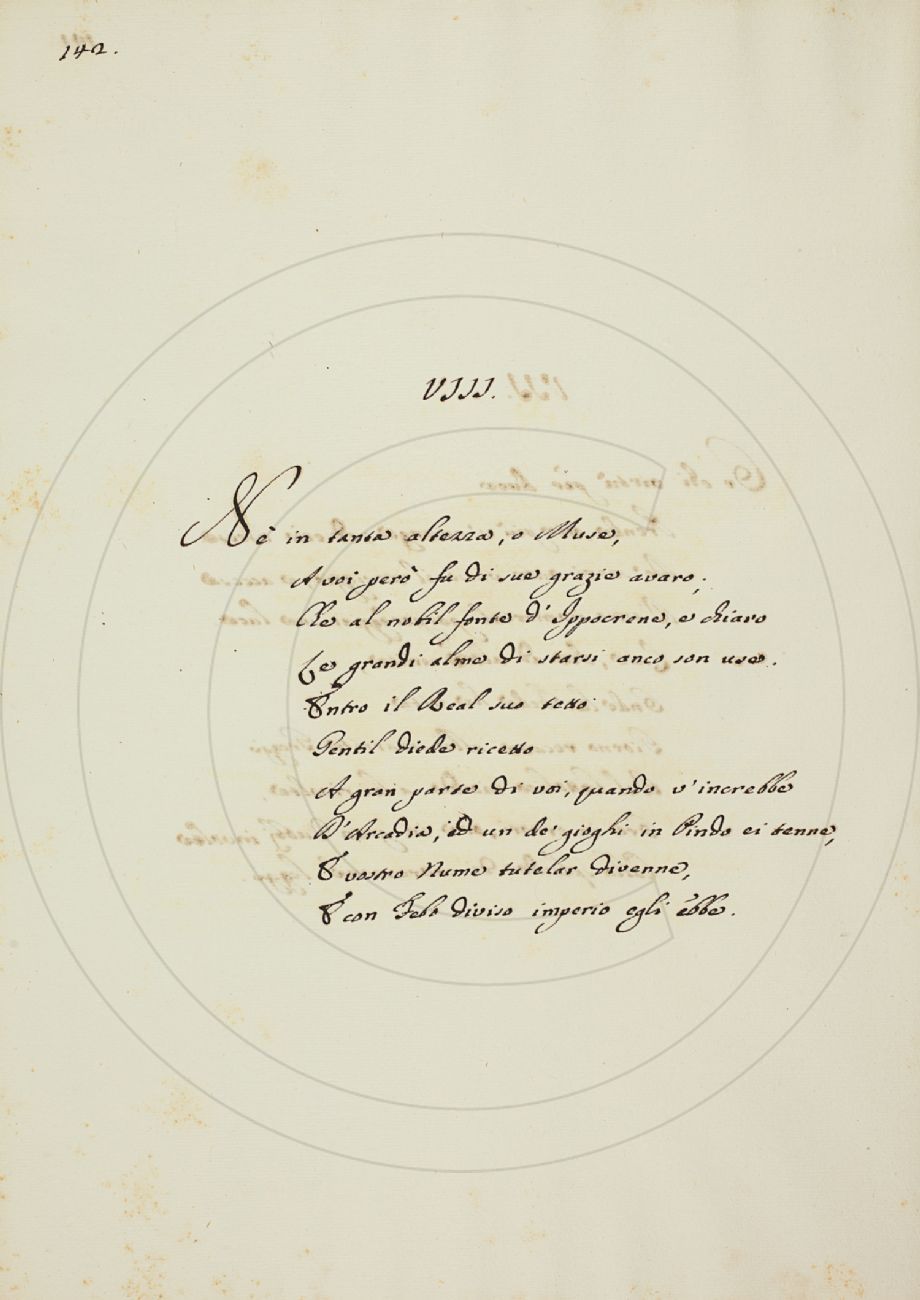 142.
VIII.
Nè in tanta altezza, o Muse,
A voi però fu di sue grazie avaro;
Che al nobil fonte d'Ippocrene, e chiaro
Le grandi alme di starsi anco son use.
Entro il Real suo tetto
Gentil diede ricetto
A gran parte di voi, quando v'increbbe
D'Arcadia, ed un de' gioghi in Pindo ei tenne,
E vostro Nume tutelar divenne,
E con Febo diviso imperio egli ebbe.